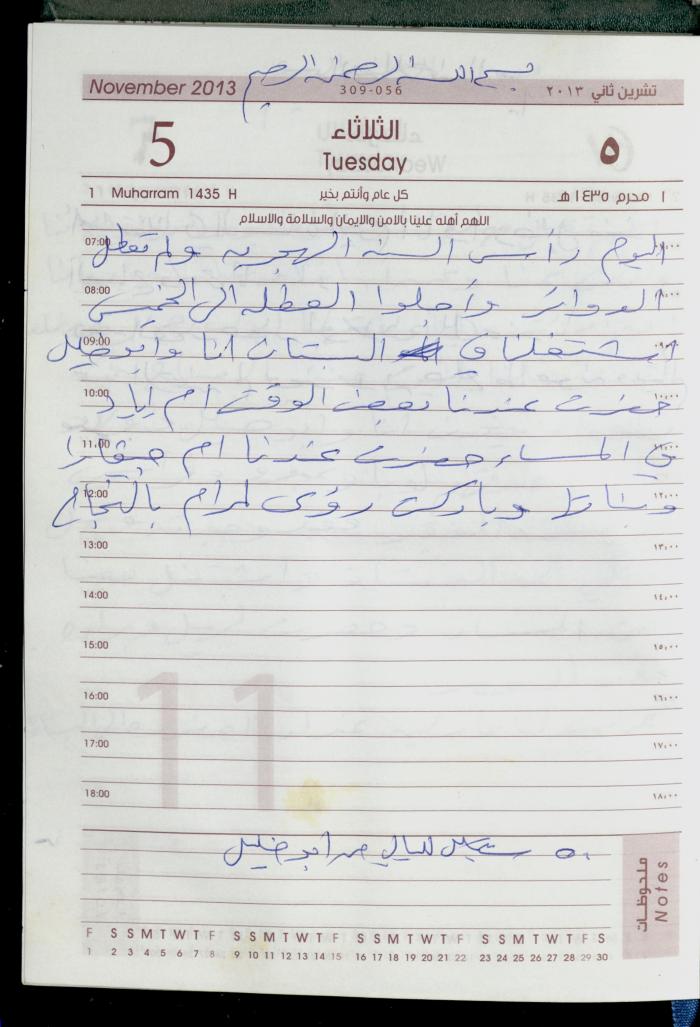 بسم الله الرحمن الرحيم
November 2013 309-056 تشرين ثاني ٢٠١٣
5 الثلاثاء ٥
Tuesday
1 Muharram 1435 H كل عام وأنتم بخير ١ محرم ١٤٣٥ هـ
اللهم أهله علينا بالامن والايمان والسلامة والاسلام
07:00 اليوم رأس السنه الهجريه ولم تعطل ٧،٠٠
08:00 الدوائر وأجلوا العطله الى الخميس ٨،٠٠
09:00 اشتغلنا في البستان انا وابو خليل ٠٩،٠٠
10:00 حضرت عندنا بعض الوقت ام اياد ١٠،٠٠
11:00 في المساء حضرت عندنا ام صقر ١١،٠٠
12:00 وباركت رؤى لمرام بالنجاح ١٢،٠٠
13:00 ١٣،٠٠
14:00 ١٤،٠٠
15:00 ١٥،٠٠
16:00 ١٦،٠٠
17:00 ١٧،٠٠
18:00 ١٨،٠٠
11
٥٠ شيكل ابو خليل
ملحوظات
Notes
F S S M T W T F S S M T W T F S S M T W T F S S M T W T F S
1 2 3 4 5 6 7 8 9 10 11 12 13 14 15 16 17 18 19 20 21 22 23 24 25 26 27 28 29 30